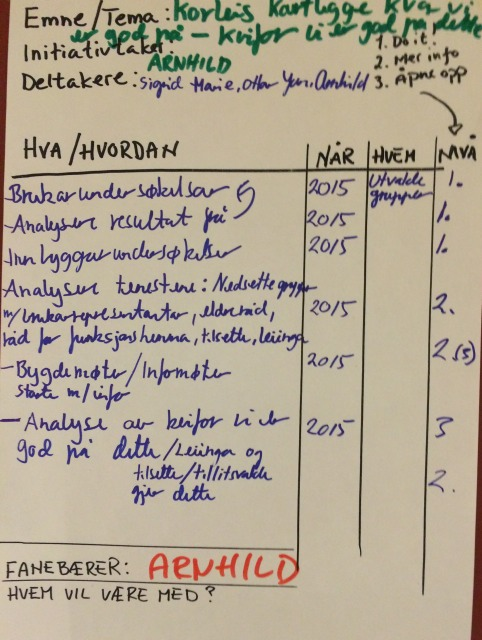 Emne/Tema: Korleis kartlegge kva vi
er god på - kvifor vi er god på dette
Initiativtaker:
ARNHILD
Deltakere: Sigrid Marie, Ottar Yvn, Arnhild
1. Do it!
2. Mer info
3. Åpne opp
HVA/HVORDAN NÅR HVEM NIVÅ
Brukarundersøkelsar 2015 Utvalde grupper 1.
-Analysere resultat på 2015 1.
-Innbyggarundersøkelser 2015 1.
Analyser tenestene: Nedsette grupper
m/brukarrepresentantar, eldreråd, 2015 2.
råd for funksjonshemma, tilsette, leiinga
-Bygdemøter/Infomøter 2015 2 (3)
starte m/info
- Analyse av kvifor vi er 2015 3
god på dette/Leiinga og
tilsette/tillitsvalde 2.
gjer dette
FANEBÆRER: ARNHILD
HVEM VIL VÆRE MED?